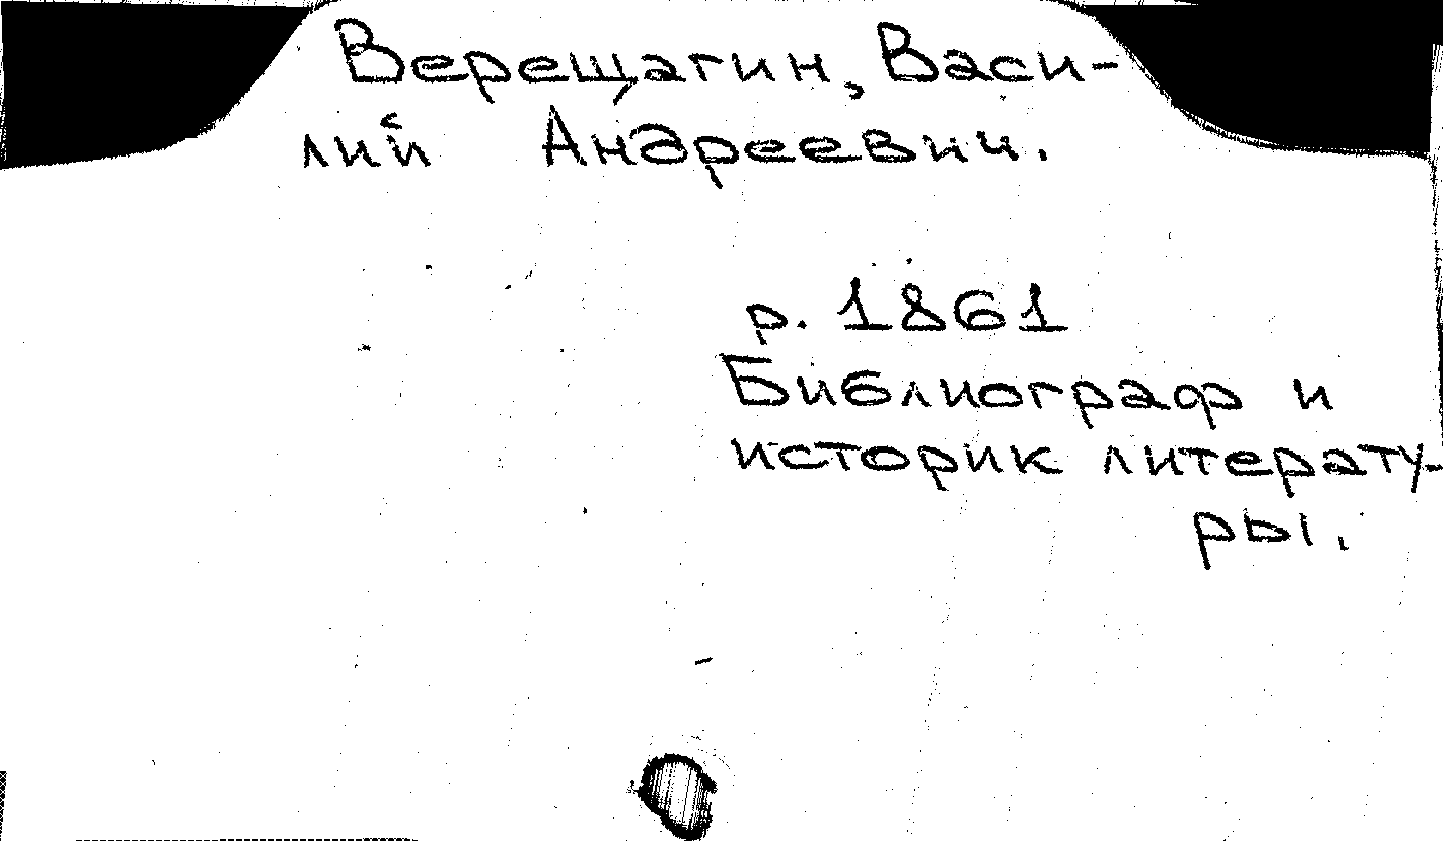 Верещагин, Васи-
лий Андреевич.
р. 1861
Библиограф и
историк литерату-
ры.